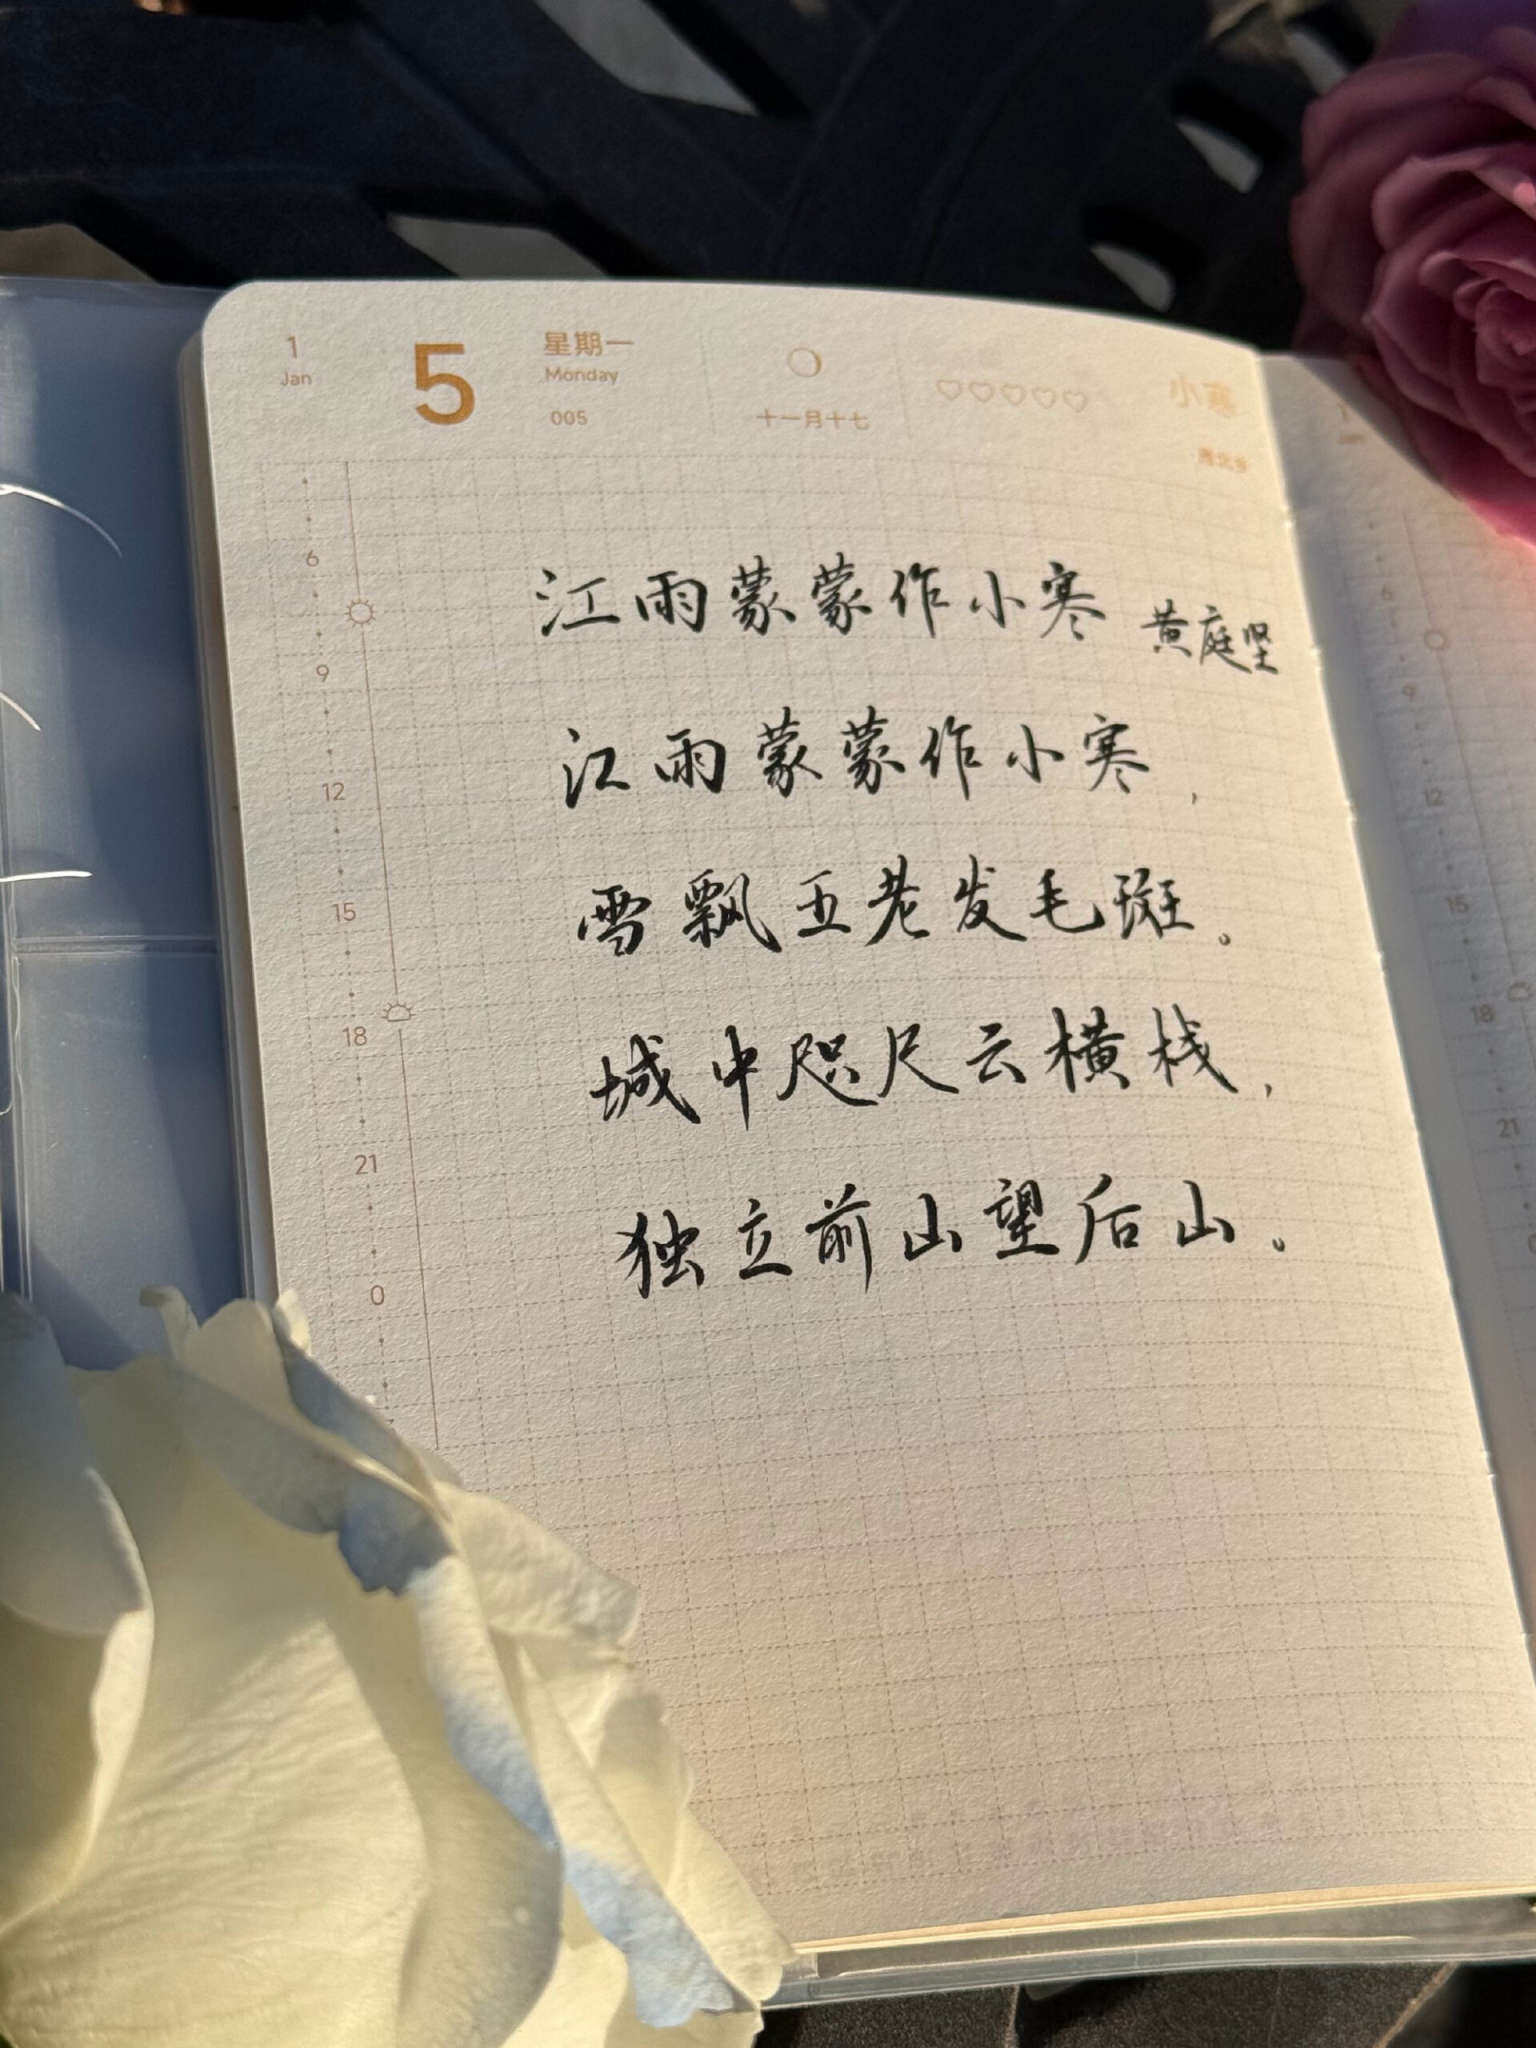 1
Jan
5
星期一
Monday
005
十一月十七
小寒
雁北乡
6
9
12
15
18
21
0
江雨蒙蒙作小寒 黄庭坚
江雨蒙蒙作小寒，
雪飘五老发毛斑。
城中咫尺云横栈，
独立前山望后山。
6
9
12
15
18
21